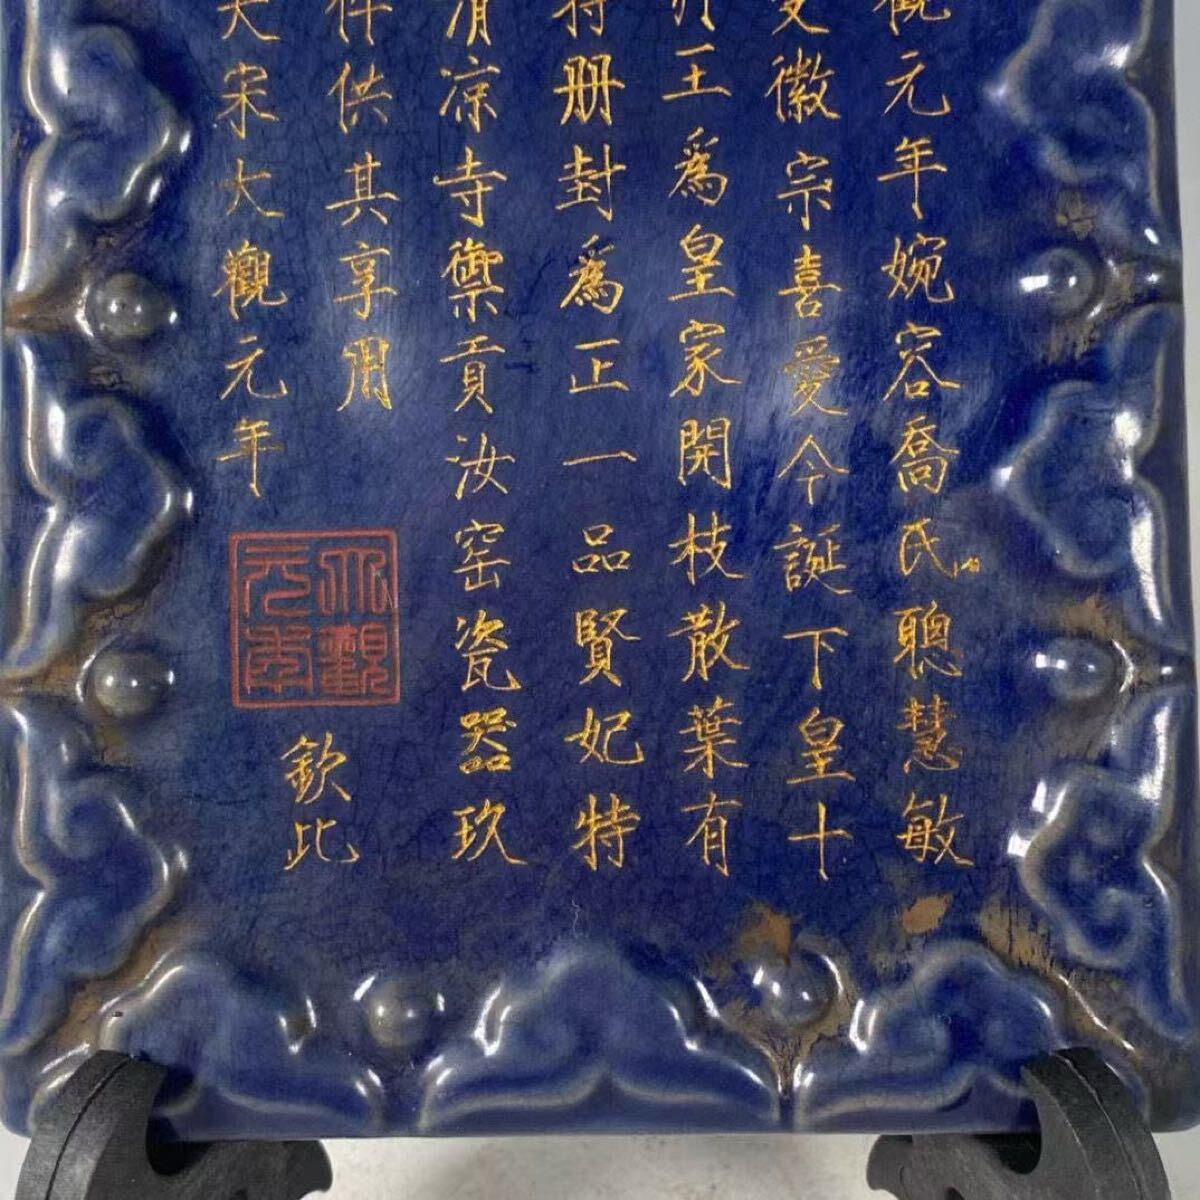 觀元年婉容喬氏聰慧敏
受徽宗喜愛今誕下皇十
王爲皇家開枝散葉有
特册封爲正一品賢妃特
清凉寺禦貢汝窑瓷器玖
件供其享用
大宋大觀元年
大觀元年
欽比